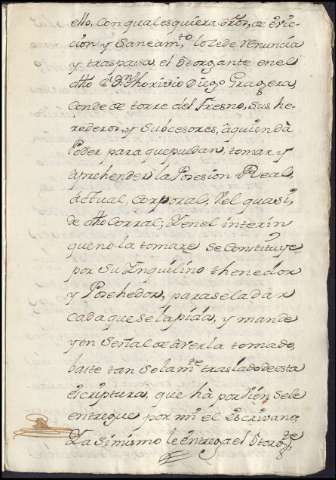 ello, con qualesquiera otros, de evic-
cion, y Saneamto lo zede renuncia
y traspasa el Otorgante en el
dho Sr Dn Thorivio Diego Gragera
Conde de torre del Fresno, sus he-
rederos, y Subcesores, a quien dà
Poder para que puedan, tomar, y
aprehender la Posesion Real,
Actual, corporal, Vel quasi,
de dho Corral; Y en el interin
que no la tomare se constituye
por su Ynquilino thenedor
y Pohehedor, para se la dar
cada que se la pida, y mande
y en señal de averla tomado,
baste tan solamte traslado de esta
Escriptura, que hà por vien se le
entregue por mi el Escrivano,
Y asimismo le entrega el Otorgte